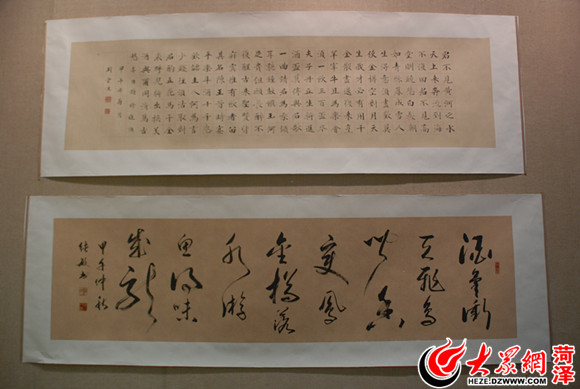 君不見黄河之水
天上来奔流到海
不復回君不見高
堂明鏡悲白髮朝
如青絲暮成雪人
生得意須盡歡莫
使金樽空對月天
生我材必有用千
金散盡還復来烹
羊宰牛且為樂會
須一飲三百杯岑
夫子丹丘生將進
酒盃莫停與君歌
一曲請君為我傾
耳聽鐘鼓饌玉何
足貴但願長醉不
復醒古来聖賢皆
寂寞惟有飲者留
其名陳王昔時宴
平樂斗酒十千恣
歡謔主人何為言
少錢徑須沽取對
君酌五花馬千金
裘呼兒將出換美
酒與爾同銷萬古
愁
甲午
酒氣衝
天飛鳥
聞香
變鳳
落
水游
魚得味
成龍
甲午仲秋
大众网 菏泽
HEZE.DZWWW.COM